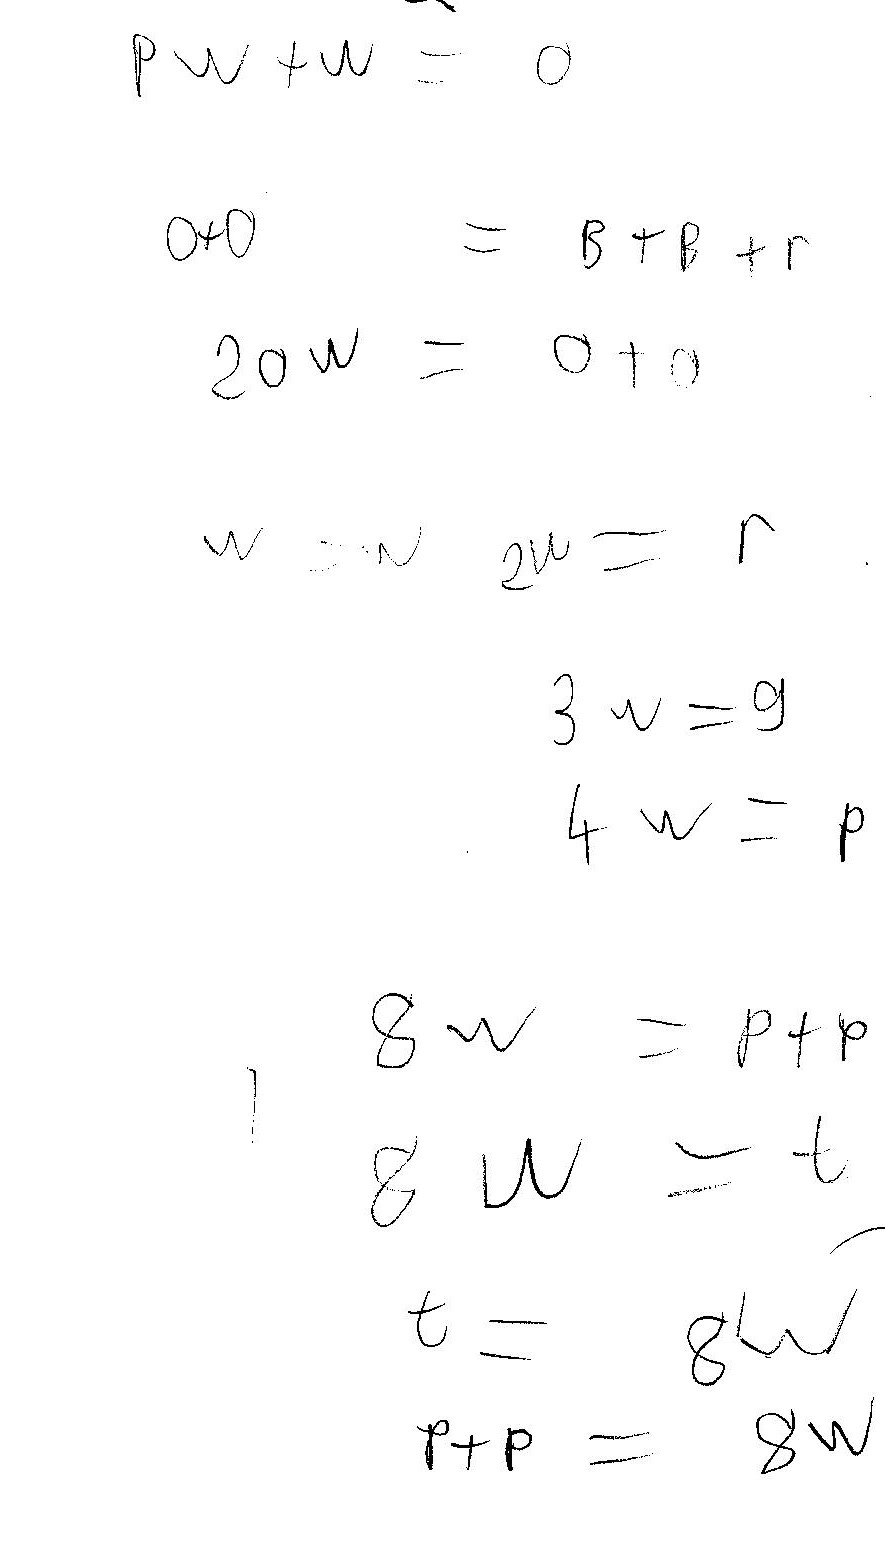 PW+W = 0
0+0 = B+B+r
20W = 0+0
W = W 2W = r
3W = g
4W = p
8W = p+p
8W = t
t = 8W
p+p = 8W